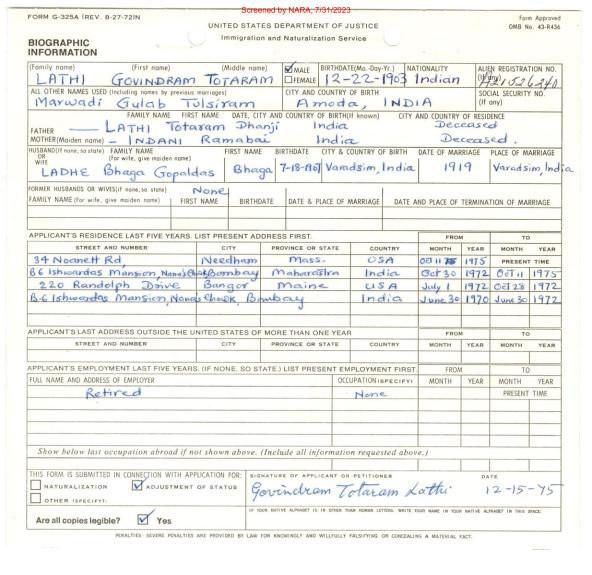 Screened by NARA, 7/31/2023
FORM G-325A (REV. 8-27-72)N
UNITED STATES DEPARTMENT OF JUSTICE
Form Approved
OMB No. 43-R436
Immigration and Naturalization Service
BIOGRAPHIC
INFORMATION
(Family name) (First name) (Middle name) MALE BIRTHDATE(Mo.-Day-Yr.) NATIONALITY ALIEN REGISTRATION NO.
LATHI GOVINDRAM TOTARAM FEMALE 12-22-1903 Indian (If any) A21526240
ALL OTHER NAMES USED (Including names by previous marriages) CITY AND COUNTRY OF BIRTH SOCIAL SECURITY NO.
Marwadi Gulab Tulsiram Amoda, INDIA (If any)
FAMILY NAME FIRST NAME DATE, CITY AND COUNTRY OF BIRTH(If known) CITY AND COUNTRY OF RESIDENCE
FATHER LATHI Totaram Dhanji India Deceased
MOTHER(Maiden name) - INDANI Ramabai India Deceased.
HUSBAND(If none, so state) FAMILY NAME FIRST NAME BIRTHDATE CITY & COUNTRY OF BIRTH DATE OF MARRIAGE PLACE OF MARRIAGE
OR (For wife, give maiden name)
WIFE
LADHE Bhaga Gopaldas Bhaga 7-18-1907 Varadsim, India 1919 Varadsim, India
FORMER HUSBANDS OR WIVES(if none, so state) None
FAMILY NAME (For wife, give maiden name) FIRST NAME BIRTHDATE DATE & PLACE OF MARRIAGE DATE AND PLACE OF TERMINATION OF MARRIAGE
APPLICANT'S RESIDENCE LAST FIVE YEARS. LIST PRESENT ADDRESS FIRST. FROM TO
STREET AND NUMBER CITY PROVINCE OR STATE COUNTRY MONTH YEAR MONTH YEAR
34 Noanett Rd, Needham Mass. USA Oct 11 1975 PRESENT TIME
B6 Ishwardas Mansion, Nana's Chowk Bombay Maharastra India Oct 30 1972 Oct 11 1975
220 Randolph Drive Bangor Maine USA July 1 1972 Oct 28 1972
B-6 Ishwardas Mansion, Nana's Chowk, Bombay India June 30 1970 June 30 1972
APPLICANT'S LAST ADDRESS OUTSIDE THE UNITED STATES OF MORE THAN ONE YEAR FROM TO
STREET AND NUMBER CITY PROVINCE OR STATE COUNTRY MONTH YEAR MONTH YEAR
APPLICANT'S EMPLOYMENT LAST FIVE YEARS. (IF NONE, SO STATE.) LIST PRESENT EMPLOYMENT FIRST. FROM TO
FULL NAME AND ADDRESS OF EMPLOYER OCCUPATION (SPECIFY) MONTH YEAR MONTH YEAR
Retired None PRESENT TIME
Show below last occupation abroad if not shown above. (Include all information requested above.)
THIS FORM IS SUBMITTED IN CONNECTION WITH APPLICATION FOR: SIGNATURE OF APPLICANT OR PETITIONER DATE
NATURALIZATION ADJUSTMENT OF STATUS Govindram Totaram Lathi 12-15-75
OTHER (SPECIFY):
IF YOUR NATIVE ALPHABET IS IN OTHER THAN ROMAN LETTERS, WRITE YOUR NAME IN YOUR NATIVE ALPHABET IN THIS SPACE:
Are all copies legible? Yes
PENALTIES: SEVERE PENALTIES ARE PROVIDED BY LAW FOR KNOWINGLY AND WILLFULLY FALSIFYING OR CONCEALING A MATERIAL FACT.